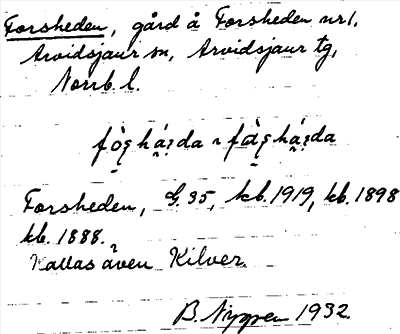 Forsheden, gård å Forsheden nr 1,
Arvidsjaur sn, Arvidsjaur tg,
Norrb. l.
Forsheden, G. 35, kb. 1919, kb. 1898
kb. 1888.
Kallas även Kilver.
B. Nyggen 1932.